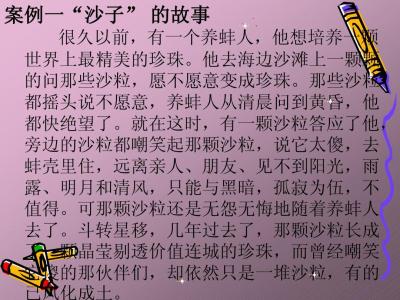 案例一“沙子” 的故事
很久以前，有一个养蚌人，他想培养一颗
世界上最精美的珍珠。他去海边沙滩上一颗
的问那些沙粒，愿不愿意变成珍珠。那些沙粒
都摇头说不愿意，养蚌人从清晨问到黄昏，他
都快绝望了。就在这时，有一颗沙粒答应了他，
旁边的沙粒都嘲笑起那颗沙粒，说它太傻，去
蚌壳里住，远离亲人、朋友、见不到阳光，雨
露、明月和清风，只能与黑暗，孤寂为伍，不
值得。可那颗沙粒还是无怨无悔地随着养蚌人
去了。斗转星移，几年过去了，那颗沙粒长成
晶莹剔透价值连城的珍珠，而曾经嘲笑
傻的那伙伴们，却依然只是一堆沙粒，有的
已风化成土。